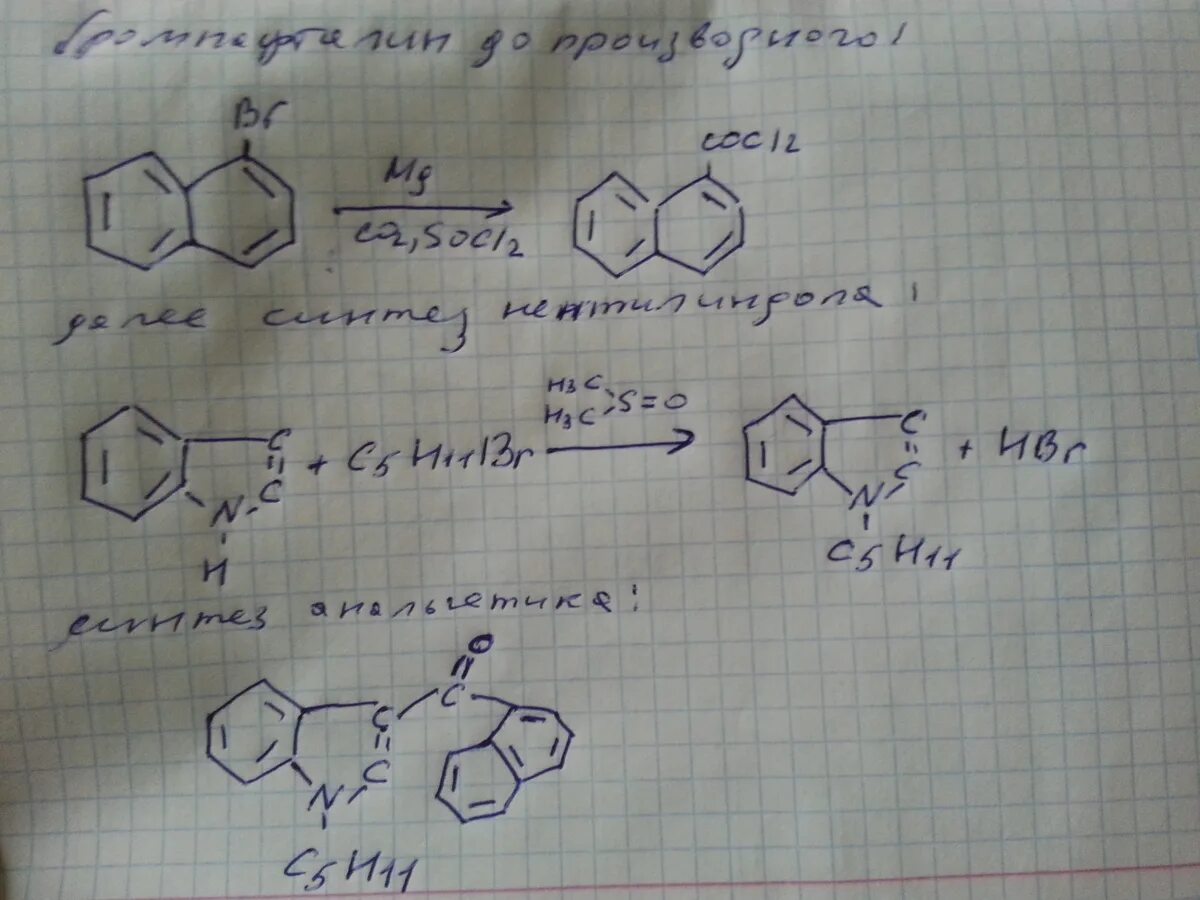 бромнафталин до производного!
Br
Mg
CO2, SOCl2
COCl2
далее синтез пентилиндола:
H3C
H3C S=O
C
C
N
H
+ C5H11Br
C
C
N
C5H11
+ HBr
синтез анальгетика:
O
C
C
C
N
C5H11